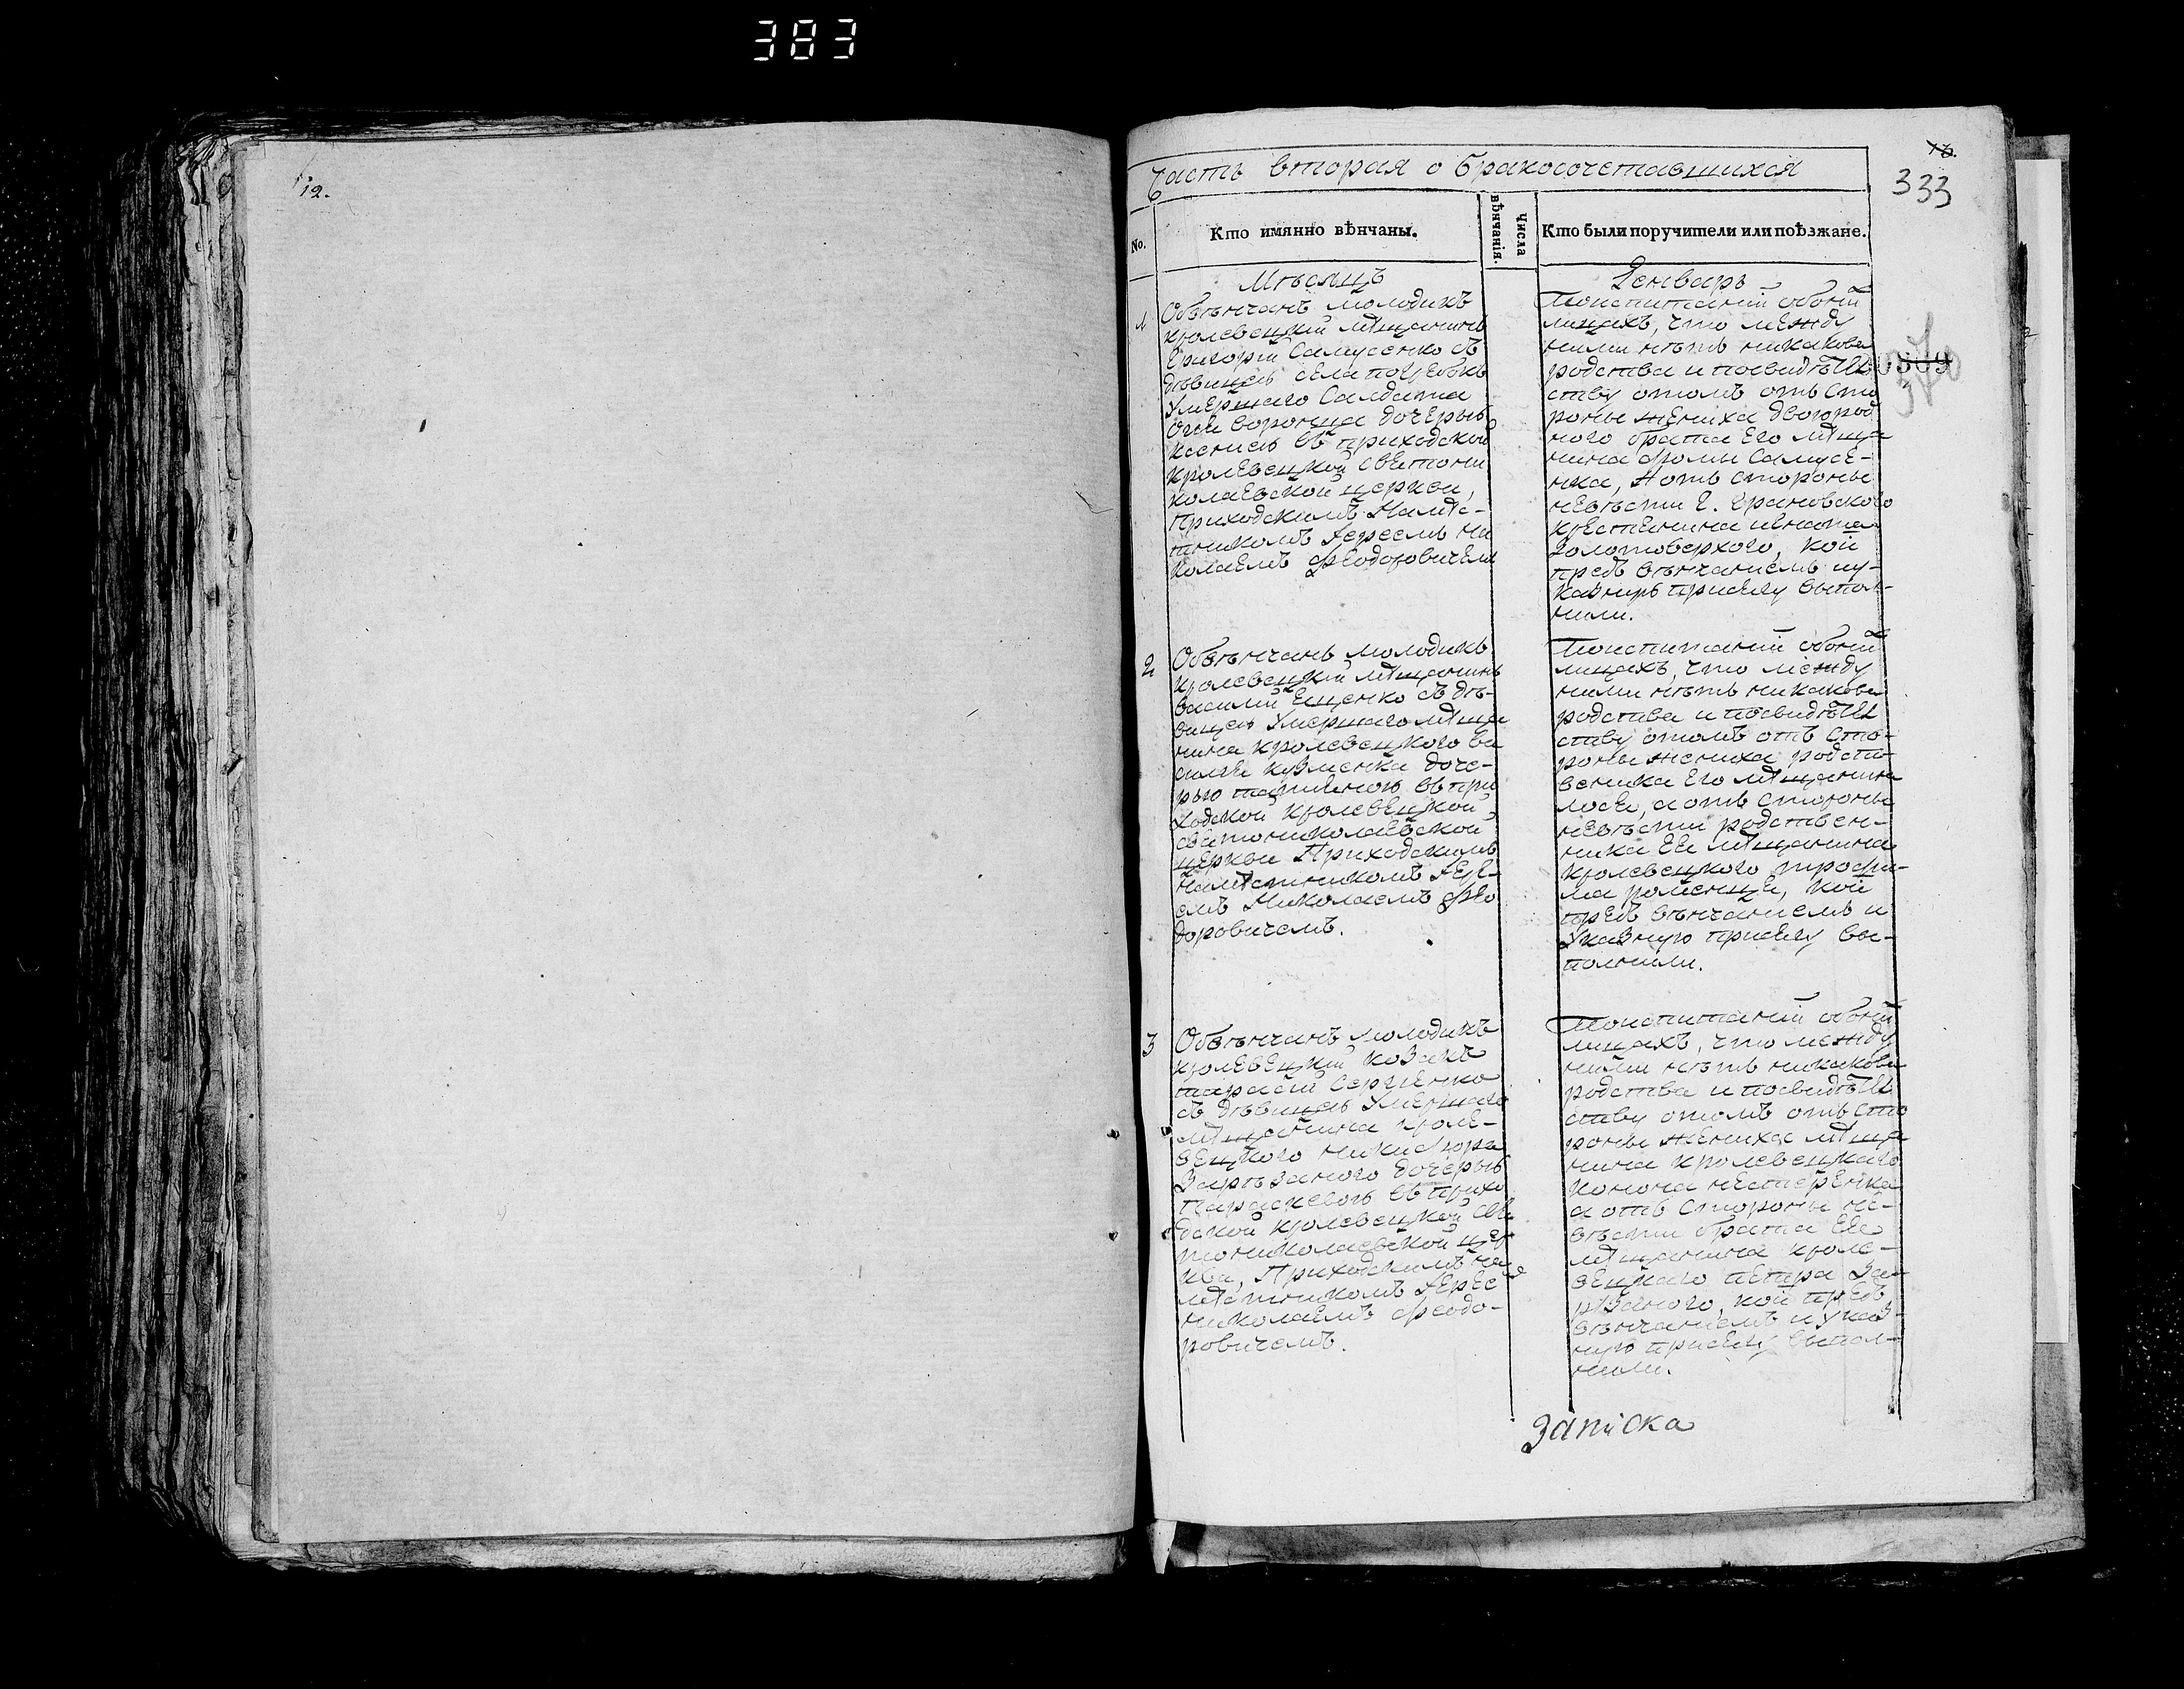 383
12.
Часть вторая о бракосочетавшихся
333
No.
Кто имянно вѣнчаны.
Числа вѣнчанія.
Кто были поручители или поѣзжане.
Мѣсяцъ
Генваръ
1
Обвѣнчанъ молодикъ
кролевецкій мѣщанинъ
Григорій Самусенко съ
дѣвицею села
умершаго Салдата
воронца дочерью
въ приходской
кролевецкой свято ни
колаевской церкви,
Приходскимъ Намѣс-
тникомъ Іереемъ Ни
колаемъ Феодоровичемъ
Поиспитаніи обоей
лицахъ, что между
ними нѣтъ никакова
родства и посвидѣтел
ству отомъ отъ сто
роны жениха двоюрод
ного брата Его мѣща
нина Фомы Самусе-
нка, а отъ стороны
невѣсти Г. Грановского
крестянина игната
Золотоверхого, кои
предъ вѣнчаніемъ иу-
казную присягу выпол-
нили.
2
Обвѣнчанъ молодикъ
кролевецкій мѣщанинъ
василій Ещенко съ дѣ-
вицею умершаго мѣща
нина кролевецкого ва
силія кузменка доче-
рью татіяною въ при
ходской кролевецкой
святониколаевской
церкви Приходскимъ
намѣстникомъ Іере-
емъ Николаемъ Фео
доровичемъ.
Поиспитаніи обоей
лицахъ, что между
ними нѣтъ никакова
родства и посвидѣтел
ству отомъ отъ сто-
роны жениха родст-
веника Его мѣщанина
а отъ стороны
невѣсти родствен-
ника Ее мѣщанина
кролевецкого трофи-
ма кои
предъ вѣнчаніемъ и
указную присягу вы-
полнили.
3
Обвѣнчанъ молодикъ
кролевецкій козакъ
тарасій Сергіенко
съ дѣвицею умершаго
мѣщанина кроле-
вецкого
Зарѣзаного дочерью
Параскевою въ прихо
дской кролевецкой свя
тониколаевской цер
кви, Приходскимъ на
мѣстникомъ Іерее
николаемъ феодо-
ровичемъ.
Поиспитаніи обоей
лицахъ, что между
ними нѣтъ никакова
родства и посвидѣтел
ству отомъ отъ сто
роны жениха мѣща
нина кролевецкаго
конона нестеренка
а отъ стороны не-
вѣсти брата Ее
мѣщанина кроле-
вецкаго петра За-
рѣзаного, кои предъ
вѣнчаніемъ и указ-
ную присягу выпол-
нили.
Записка